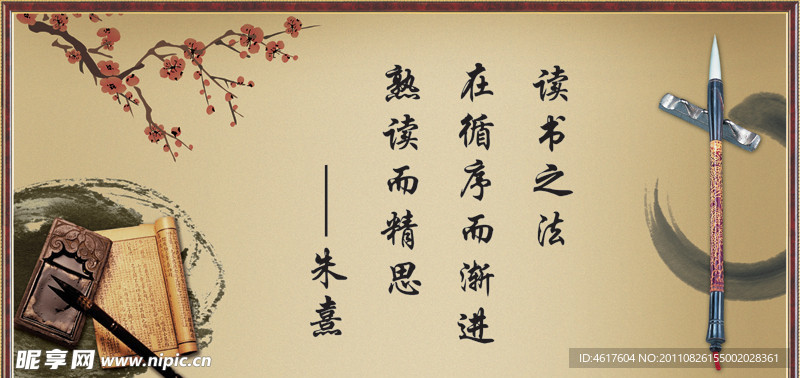 读书之法
在循序而渐进
熟读而精思
——朱熹
昵享网 www.nipic.cn
ID:4617604 NO:20110826155002028361